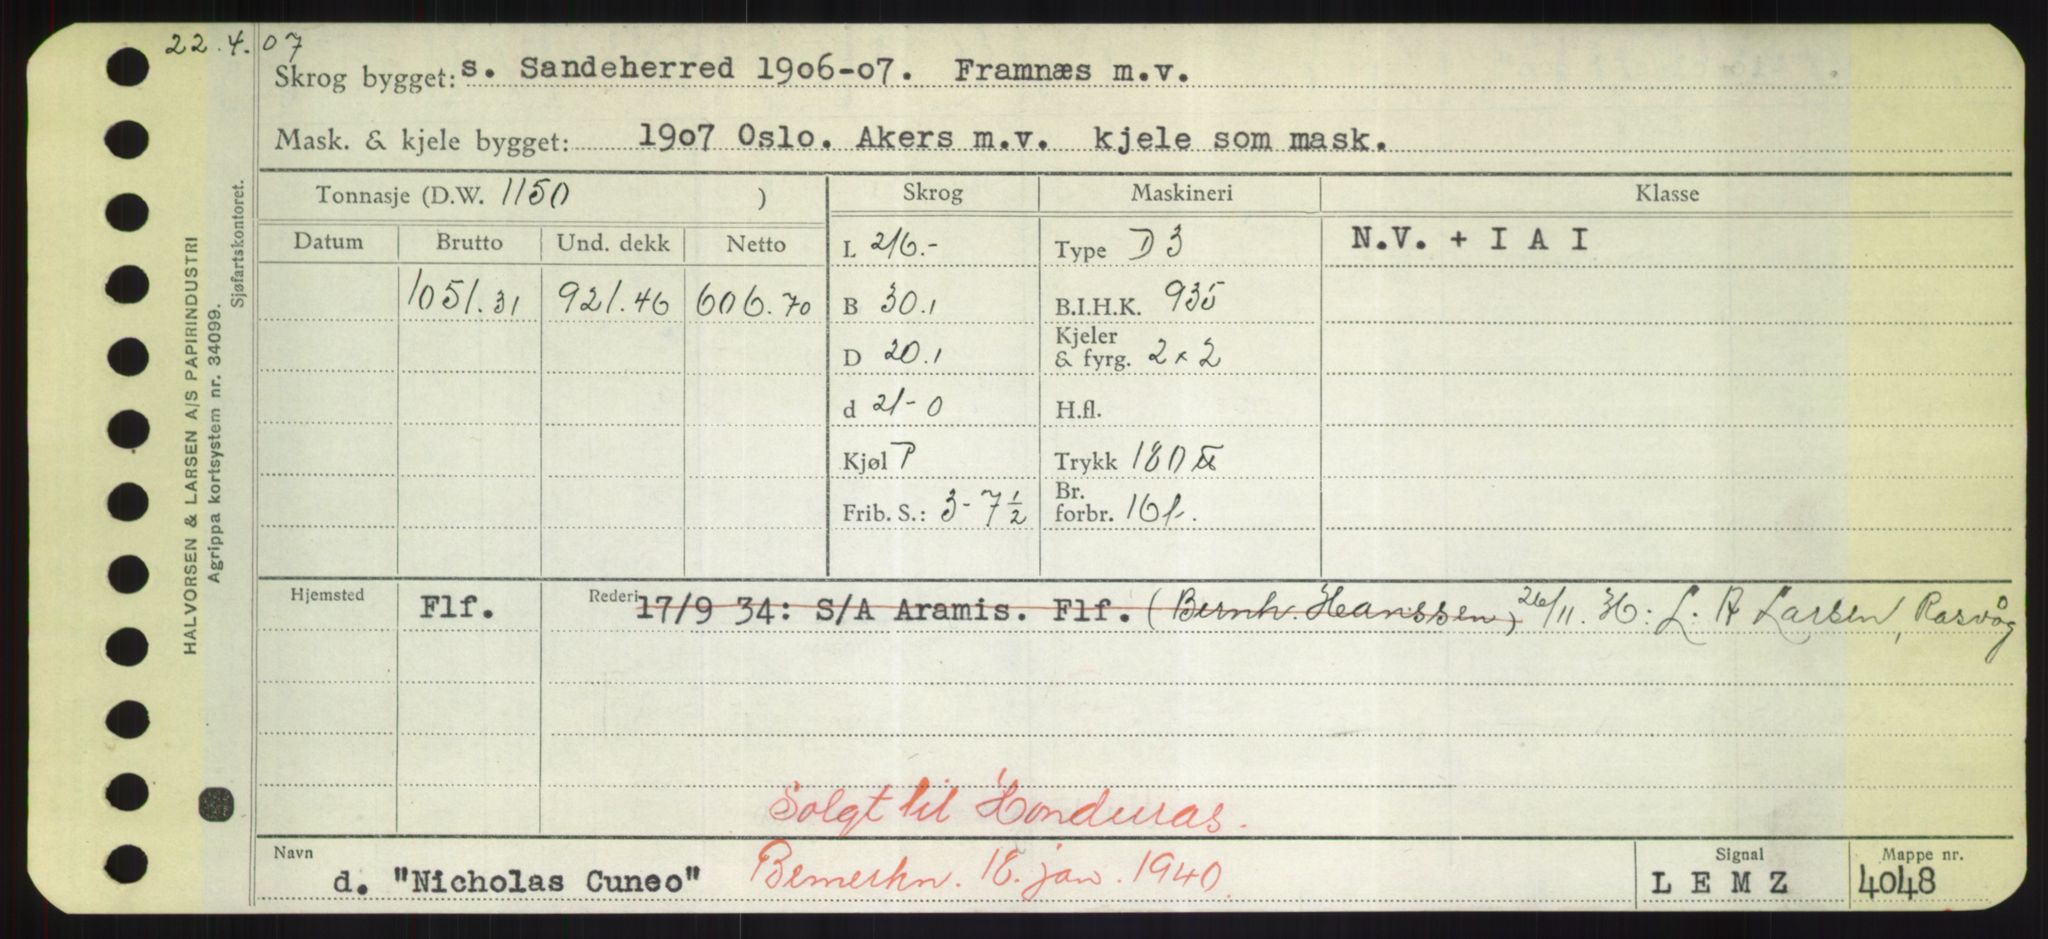 22.4.07
Skrog bygget: s. Sandeherred 1906-07. Framnæs m.v.
Mask. & kjele bygget: 1907 Oslo. Akers m.v. kjele som mask.
Tonnasje (D.W. 1150 ) Skrog Maskineri Klasse
Datum Brutto Und. dekk Netto L 216.- Type D3 N.V. + I A I
1051.31 921.46 606.70 B 30.1 B.I.H.K. 935
D 20.1 Kjeler & fyrg. 2 x 2
d 21-0 H.fl.
Kjøl P Trykk 180
Frib. S.: 3-7½ Br. forbr. 10 t.
Hjemsted Flf. Rederi 17/9 34: S/A Aramis. Flf. (Bernh. Hanssen) 26/11. H: L. A Larsen, Rasvåg
Solgt til Honduras.
Navn d. "Nicholas Cuneo" Bemerkn. 18. jan. 1940. Signal L E M Z Mappe nr. 4048
HALVORSEN & LARSEN A/S PAPIRINDUSTRI
Agrippa kortsystem nr. 34099.
Sjøfartskontoret.